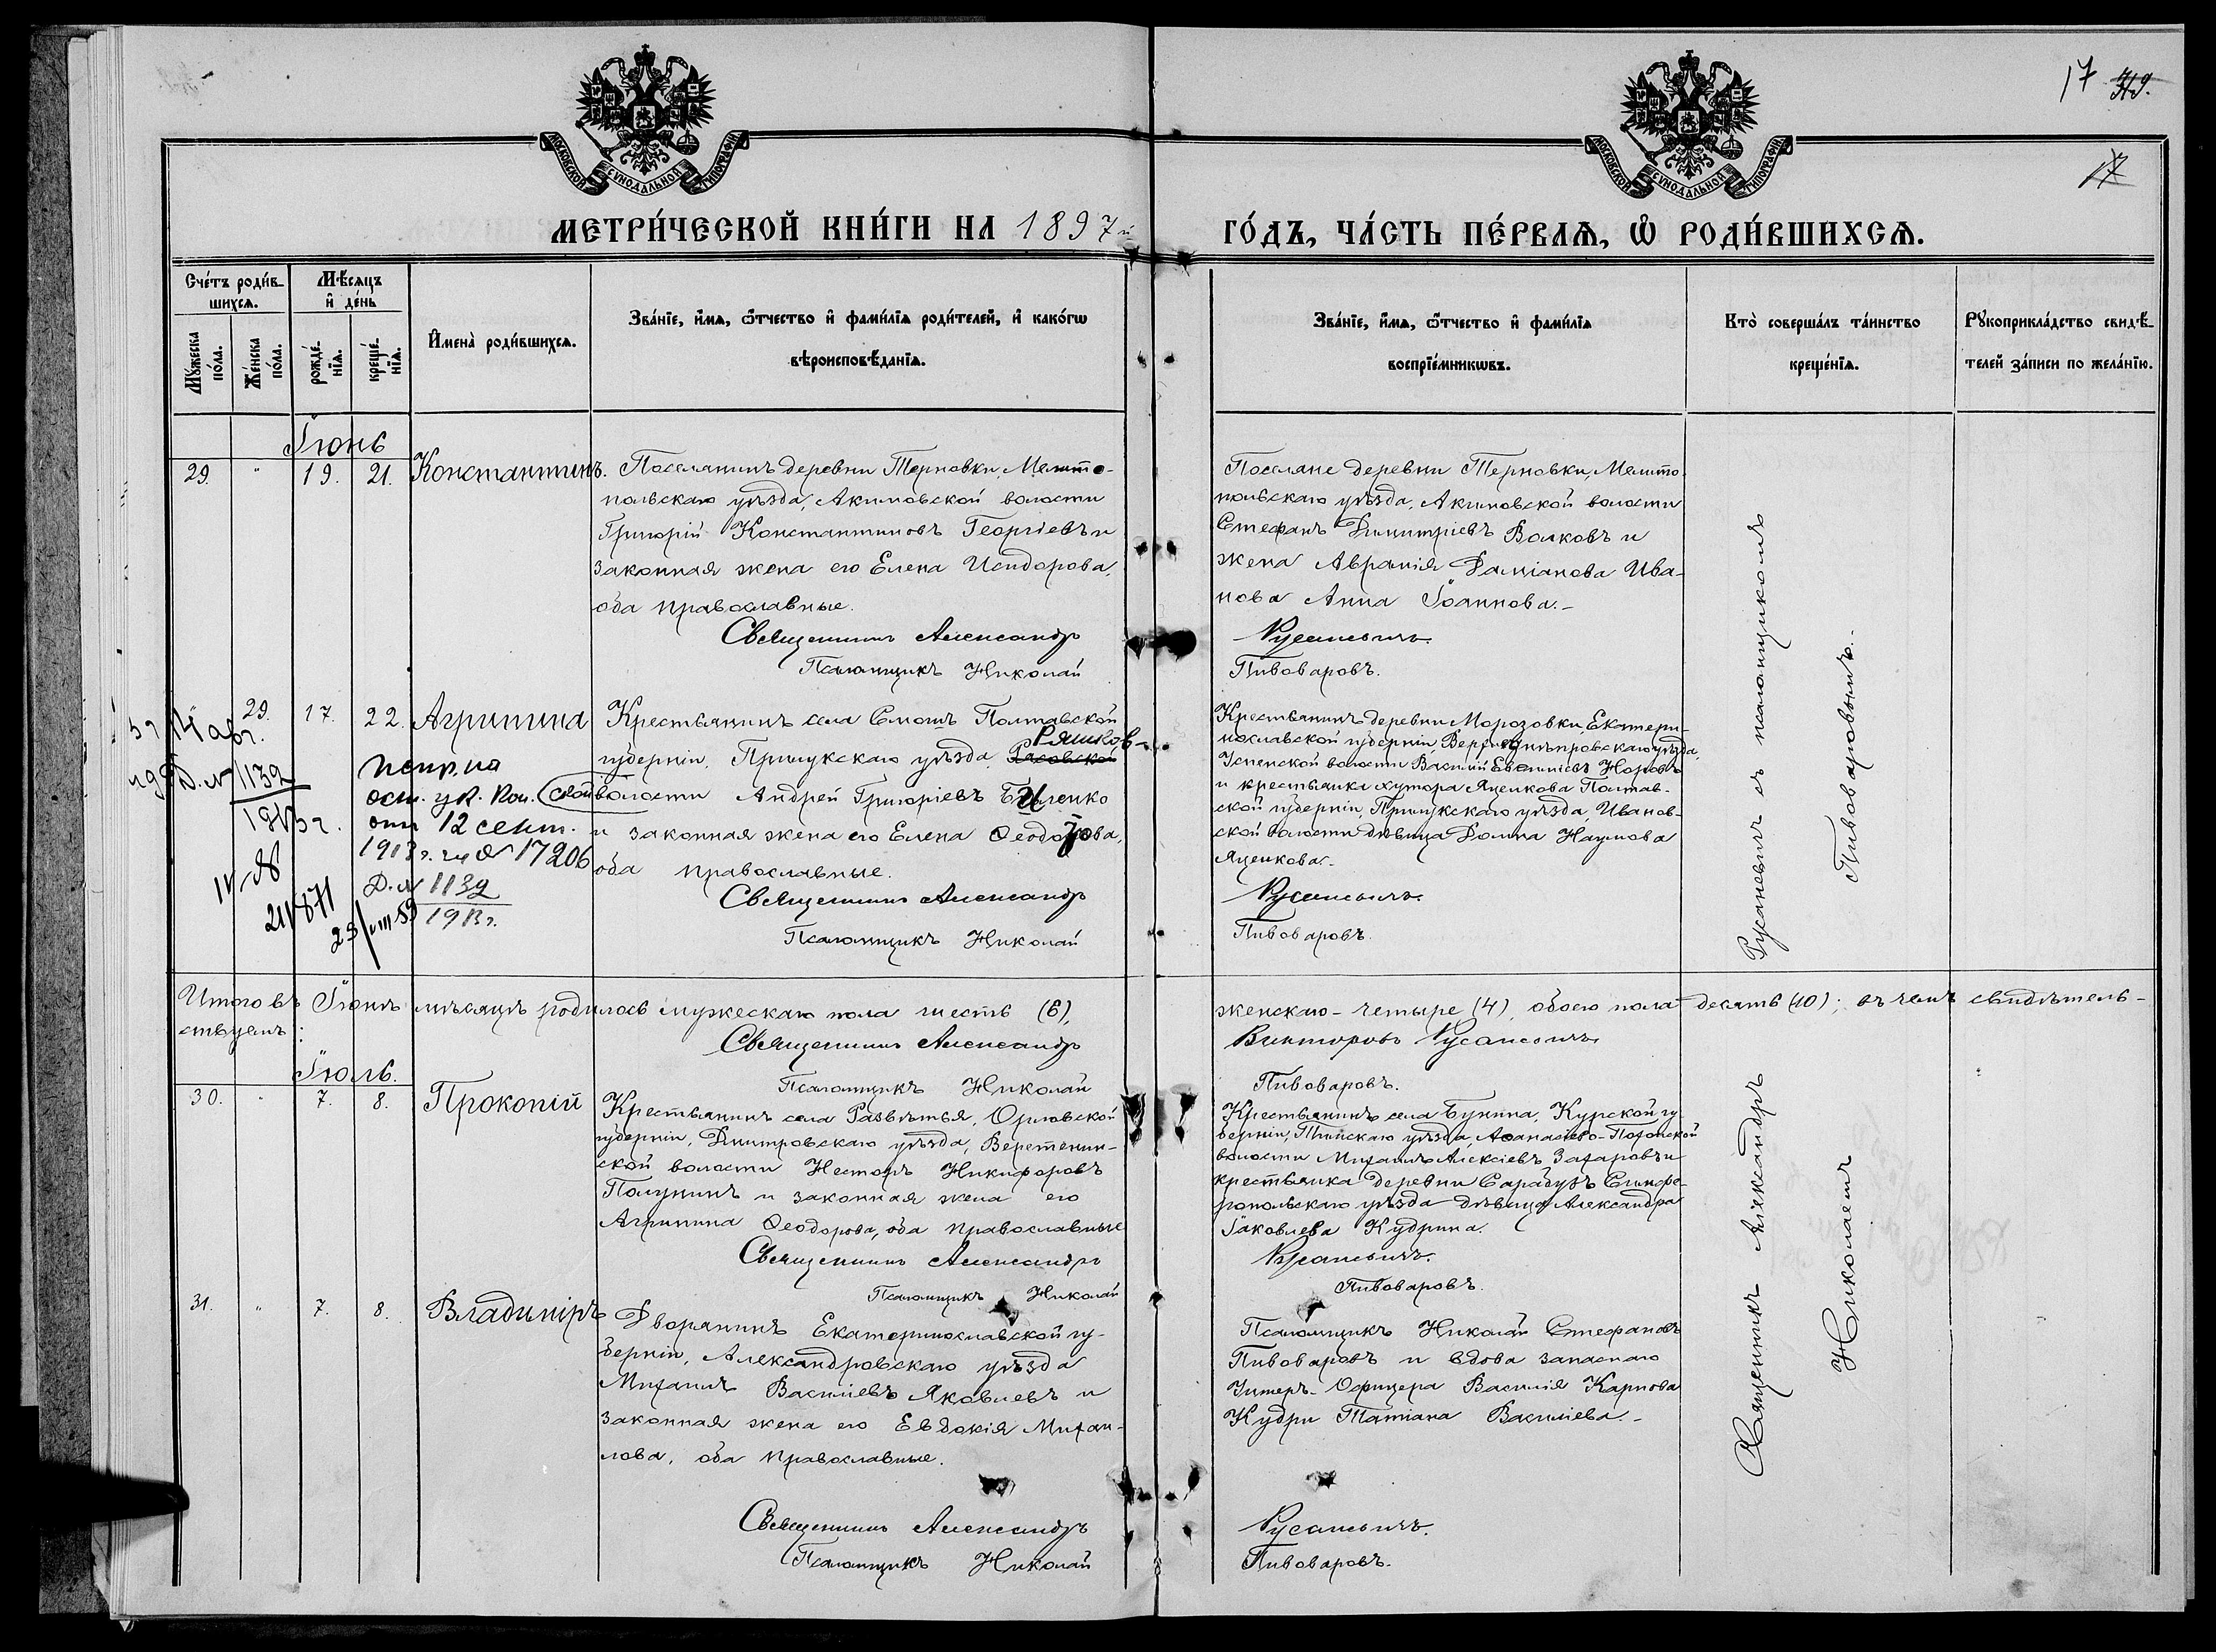 17 319.
17
МОСКОВСКОЙ СѴНОДАЛЬНОЙ ТИПОГРАФІИ
МОСКОВСКОЙ СѴНОДАЛЬНОЙ ТИПОГРАФІИ
МЕТРИ́ЧЕСКОЙ КНИ́ГИ НА 1897й
ГО́ДЪ, ЧА́СТЬ ПЕ́РВАѦ, Ѽ РОДИ́ВШИХСѦ.
Сче́тъ роди́в-
шихсѧ.
Мꙋ́жеска по́ла.
Же́нска по́ла.
Мѣ́сѧцъ
и҆ де́нь
рожде́нїѧ.
креще́нїѧ.
И҆мена̀ роди́вшихсѧ.
Зва́нїе, и҆́мѧ, ѻ҆́тчество и҆ фами́лїѧ роди́телей, и҆ како́гѡ
вѣроисповѣ́данїѧ.
Зва́нїе, и҆́мѧ, ѻ҆́тчество и҆ фами́лїѧ
воспрїе́мникѡвъ.
Кто̀ соверша́лъ та́инство
креще́нїѧ.
Рꙋкоприкла́дство свидѣ́-
телей за́писи по жела́нїю.
Іюнь
29. " 19. 21. Константинъ.
Поселянинъ деревни Терновки, Мелито-
польскаго уѣзда, Акимовской волости
Григорій Константиновъ Георгіевъ и
законная жена его Елена Исидорова,
оба православные.
Священникъ Александръ
Псаломщикъ Николай
Поселяне деревни Терновки, Мелито-
польскаго уѣзда, Акимовской волости
Стефанъ Димитріевъ Волковъ и
жена Авраміѧ Даміанова Ива-
нова Анна Іоаннова.-
Русаневичъ.
Пивоваровъ.
29. 17. 22. Агрипина
Крестьянинъ села Смошъ Полтавской
Ряшков-
губерніи, Прилукскаго уѣзда,
ской волости Андрей Григоріевъ Биленко
и законная жена его Елена Ѳеодорова,
оба православные.
Священникъ Александръ
Псаломщикъ Николай
Д. № 1139
1913 г.
испр. на
осн. ук. Кон.
отъ 12 сент.
1913 г. за № 17206
Д. № 1139
1913 г.
Крестьянинъ деревни Морозовки, Екатери-
нославской губерніи, Верхнеднѣпровскаго уѣзда,
Успенской волости Василій Евѳиміевъ Норовъ
и крестьянка хутора Яценкова Полтав-
ской губерніи, Прилукскаго уѣзда, Иванов-
ской волости дѣвица Домна Наумова
Яценкова.
Русаневичъ.
Пивоваровъ.
Русаневичъ съ псаломщикомъ
Пивоваровымъ.-
Итого въ Іюнѣ мѣсяцѣ родилось мужескаго пола шесть (6),
женскаго - четыре (4), обоего пола десять (10); въ чемъ свидѣтель-
ствуемъ:
Священникъ Александръ
Викторовъ Русаневичъ
Псаломщикъ Николай
Пивоваровъ.
Іюль.
30. " 7. 8. Прокопій
Крестьянинъ села Развѣтья, Орловской
губерніи, Дмитровскаго уѣзда, Веретенин-
ской волости Несторъ Никифоровъ
Полунинъ и законная жена его
Агрипина Ѳеодорова, оба православные
Священникъ Александръ
Псаломщикъ Николай
Крестьянинъ села Бунина, Курской гу-
берніи, уѣзда, Аѳанасіево-
волости Михаилъ Алексіевъ Захаровъ и
крестьянка деревни Сарабузъ Симфе-
ропольскаго уѣзда дѣвица Александра
Іаковлева Кудрина.
Русаневичъ.
Пивоваровъ.
31. " 7. 8. Владиміръ
Дворянинъ Екатеринославской гу-
берніи, Александровскаго уѣзда
Михаилъ Василіевъ Яковлевъ и
законная жена его Евдокія Михаи-
лова, оба православные.
Священникъ Александръ
Псаломщикъ Николай
Псаломщикъ Николай Стефановъ
Пивоваровъ и вдова запаснаго
Унтеръ-Офицера Василія Карпова
Кудри Татіана Василіева.-
Русаневичъ.
Пивоваровъ.
Священникъ Александръ
Николаемъ